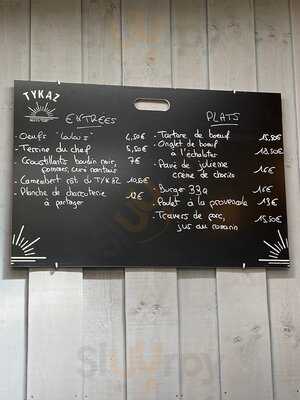 TYKAZ
ENTRÉES
- Oeufs "
4,50€
- Terrine du chef
5,50€
- Croustillants boudin noir,
7€
pommes, curé nantais
- Camembert rôti du TYKAZ
10,50€
- Planche de charcuterie
12€
à partager
PLATS
- Tartare de boeuf
15,50€
- Onglet de boeuf
à l'échalotes
18,50€
- Pavé de julienne
16€
crème de chorizo
- Burger 339
16€
- Poulet à la provençale
13€
- Travers de porc,
15,50€
jus au romarin